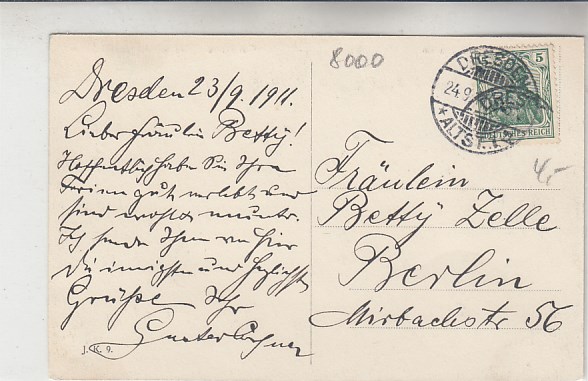 8000
Dresden 23/9. 1911.
Liebes Fräulein Betty!
Hoffentlich haben Sie Ihre
Ferien gut verlebt und
sind wohl u. munter.
Ich sende Ihnen von hier
die innigsten und herzlichsten
Grüße Ihr
Gunter
J. K. 9.
DRESDEN
24.9.
* ALTST.
5
DEUTSCHES REICH
4,-
Fräulein
Betty Zelle
Berlin
Mirbachstr 56